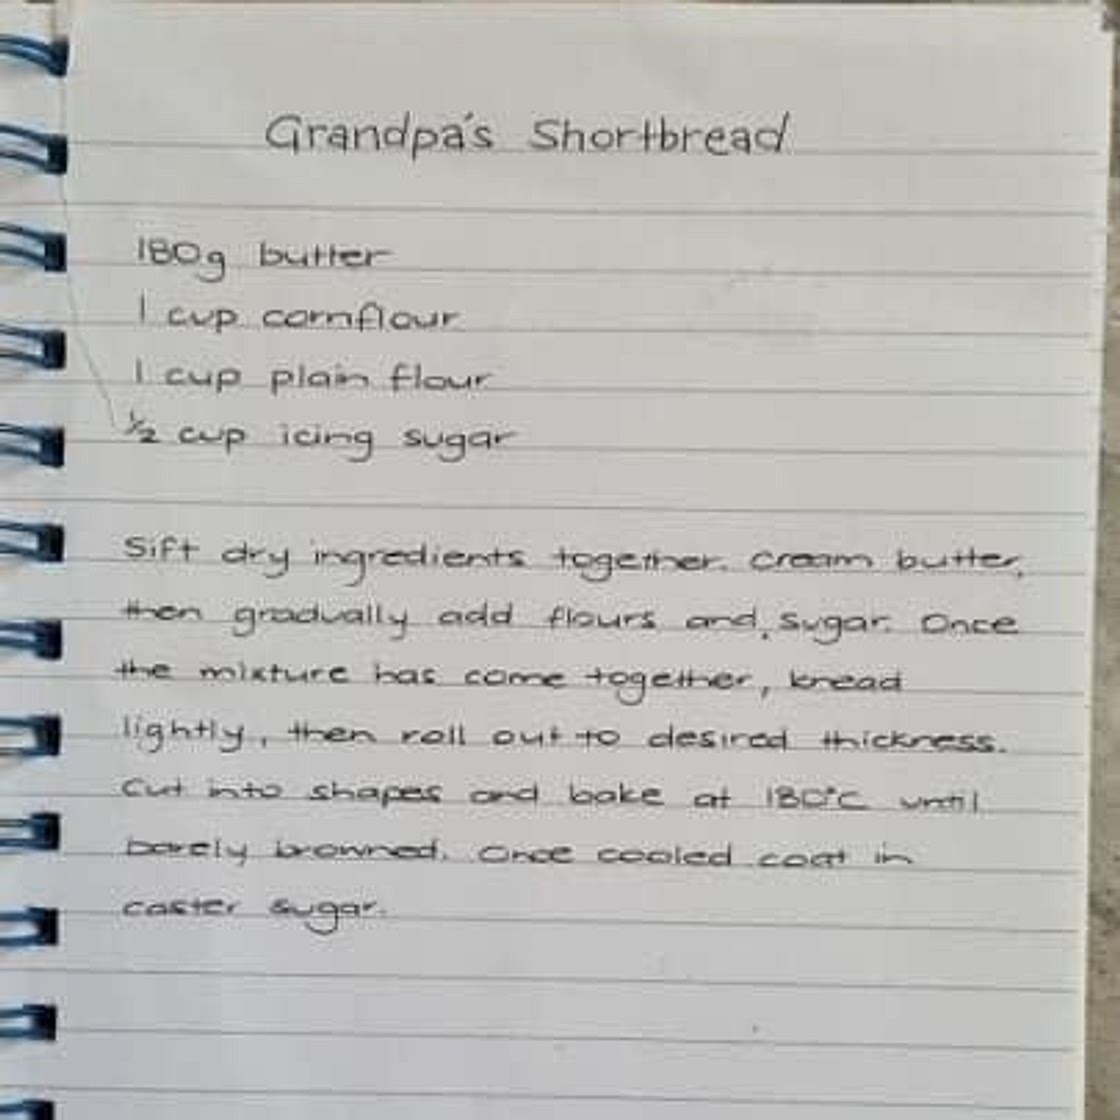 Grandpa's Shortbread
180g butter
1 cup cornflour
1 cup plain flour
1/2 cup icing sugar
Sift dry ingredients together. Cream butter,
then gradually add flours and sugar. Once
the mixture has come together, knead
lightly, then roll out to desired thickness.
Cut into shapes and bake at 180°C until
barely browned. Once cooled coat in
caster sugar.